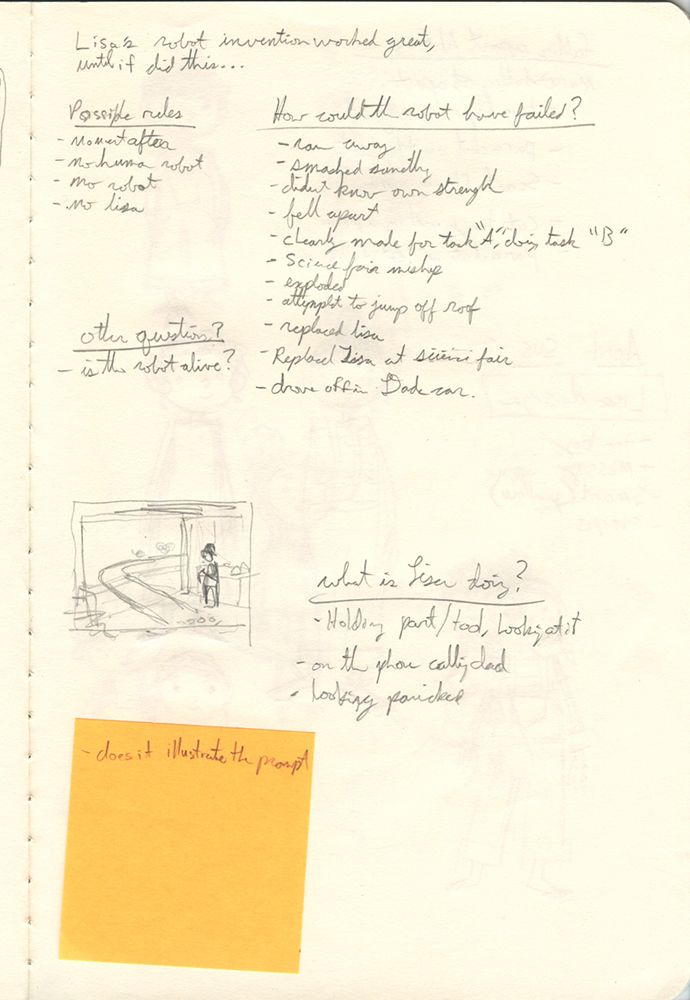 Lisa's robot invention worked great,
until if did this...
Possible rules
- moment after
- no huma robot
- no robot
- no lisa
How could the robot have failed?
- ran away
- smashed somethg
- didnt know own strength
- fell apart
- clearly made for task "A", doing task "B"
- Science fair mishap
- exploded
- attempt to jump off roof
- replaced lisa
- Replaced Lisa at science fair
- drove off in Dads car.
other question?
- is the robot alive?
what is Lisa doing?
- Holding part/tool, Looking at it
- on the phone calling dad
- looking panicked
- does it illustrate the prompt